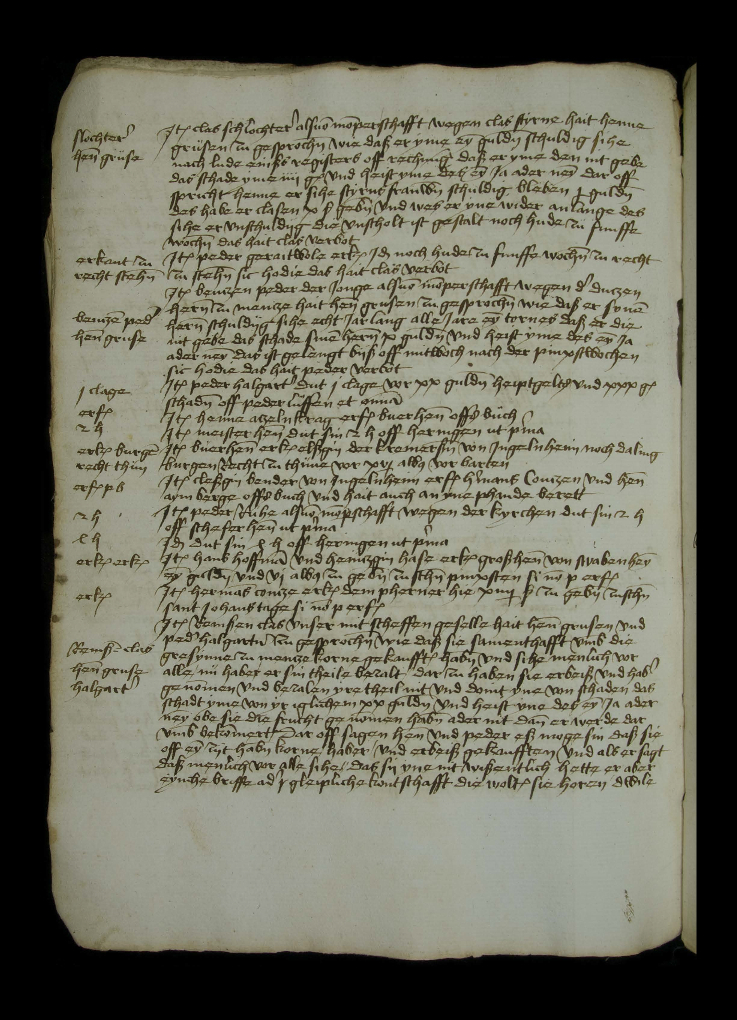 slochter
hen gruse
Jt clas schlochter also momperschafft wegen clas styrne hait henne
grusen zu gesprochn wie daß er yme ey guldn schuldig sihe
nach lude eins registers off rechnung daß er yme den nit gebe
das schade yme iiij g und heist yme des ey Ja ader ney dar off
spricht henne er sihe styrns frauwen schuldig bleben j guldn
des habe er clasen x ß gebn und wes er yne wider anlange des
sihe er unschuldig die unscholt ist gestalt noch hude zu funffe
wochn das hait clas verbot
erkant zu
recht stehn
Jt peder gerartwole erk Jdn noch hude zu funffe wochn zu recht
zu stehn sic hodie das hait clas verbot
bentzen ped
hen gruse
Jt bentzen peder der Jonge also momperschafft wegen d dutzen
hern zu mentze hait hen grusen zu gesprochn wie daß er synen
hern schuldig sihe echt Jar lang alle Jare ey tornes daß er die
nit gebe das schade sinen hern x guldn und heist yme des ey Ja
ader ney das ist gelengt biß off mitwoch nach der pinxstwochen
sic hodie das hait peder verbot
j clage
Jt peder halgart dut j clage vor xx guldn heiptgelt und xxx g
schadn off peder lussen et omnia
erf
Jt henne atzelnkrag erf buerhen offs buch
2 h
Jt meister hen dut sin 2 h off heringen ut prima
erk burge
recht thun
Jt buerhen erk elßgin der kremersin von Jngelnheim noch daling
burgen Recht zu thune vor xvj alb vor barten
erf p b
Jt cleßgin bender von Jngelnheim erf hermans Contzen und hen
aym berge offs buch und hait auch an yme phande berett
2 h
Jt peder Ruhe also mompschafft wegen der kyrchen dut sin 2 h
off scheffer hen ut prima
l h
Jdn dut sin l h off heringen ut prima
erk erk
Jt hans hoffman und heintzgin hase erk großhen von swabenhey
ey guldn und vj alb zu gebn zuschn pinxsten si no p erf
erk
Jt hermas contze erk dem pherner hie xiiij ß zu gebn zuschn
sant Johans tage si no p erf
Remß clas
hen gruse
halgart
Jt Remßen clas unser mit scheffen geselle hait hen grusen und
ped halgartn zu gesprochn wie daß sie samenthafft umb die
gresynne zu mentze korne gekaufft habn und sihe menlich vor
alle nu haber er sin theile bezalt dar zu haben sie erbeiß und hab
genomen und bezalen yre theil nit und domit yne von schaden das
schadt yme von yr iglichem xx guldn und heist yme des ey Ja ader
ney obe sie die frucht genomen habn ader nit dan er werde dar
umb bekomert Dar off sagen hen und peder eß moge sin daß sie
off ey zijt habn korne haber und erbeiß gekaufften und als er sagt
daß menlich vor alle sihe daß sij yne nit wißentlich hette er aber
eynche briffe ad gleipliche kontschafft die wolt sie horen dwile